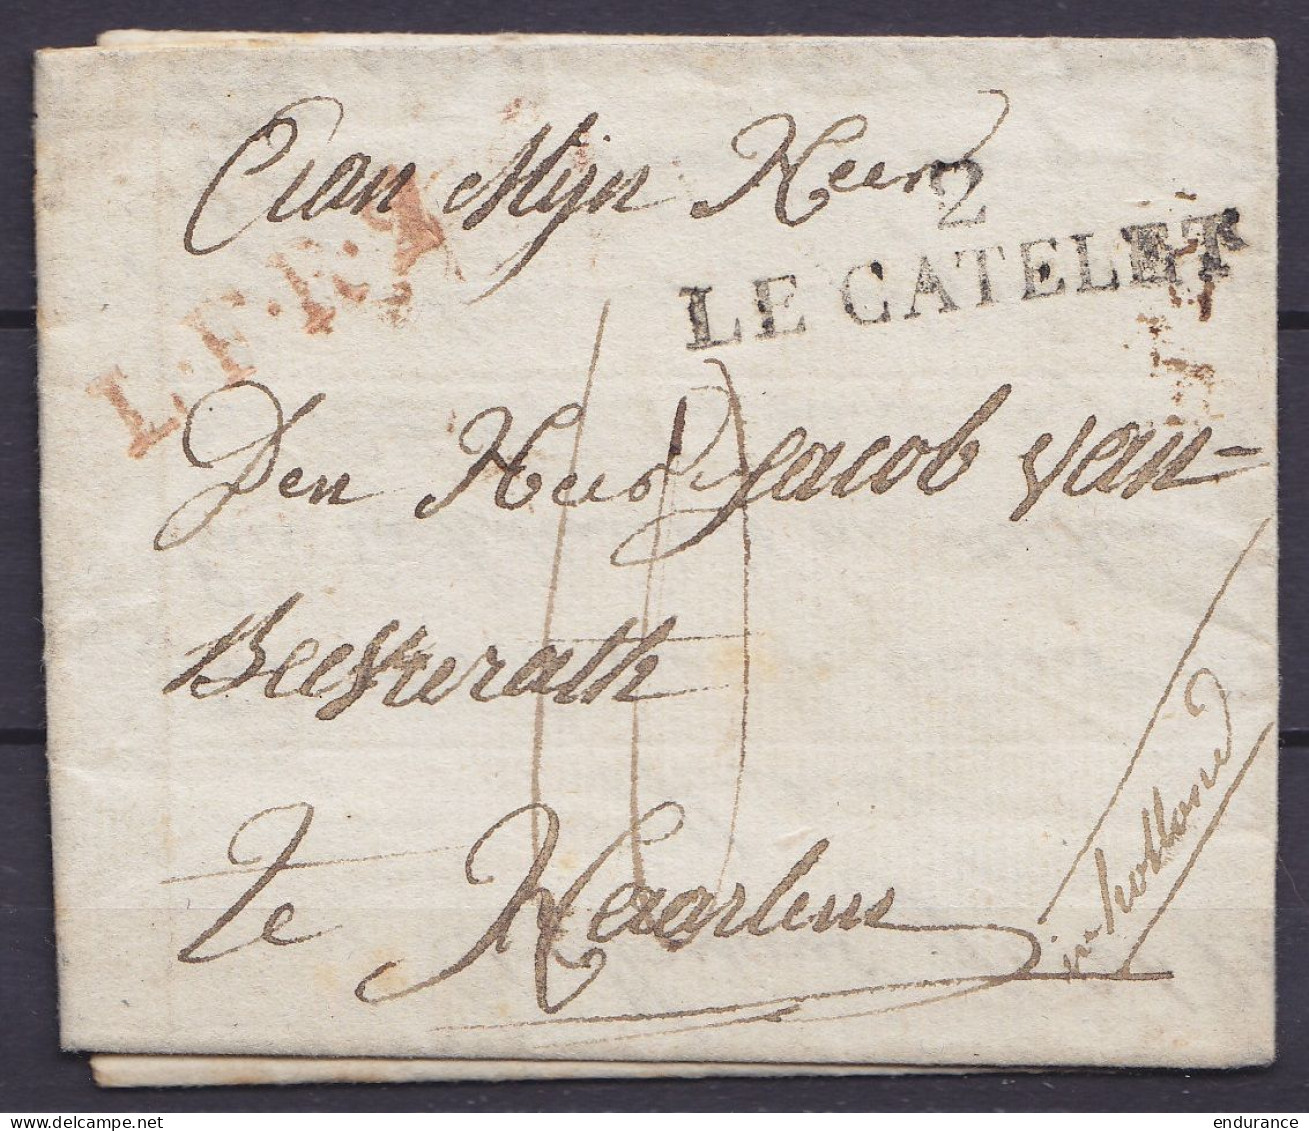 aan Mijn Heer
L.F.R.4
2
LE CATELET
Den Heer Jacob van-
te Haarlem
in holland
endurance